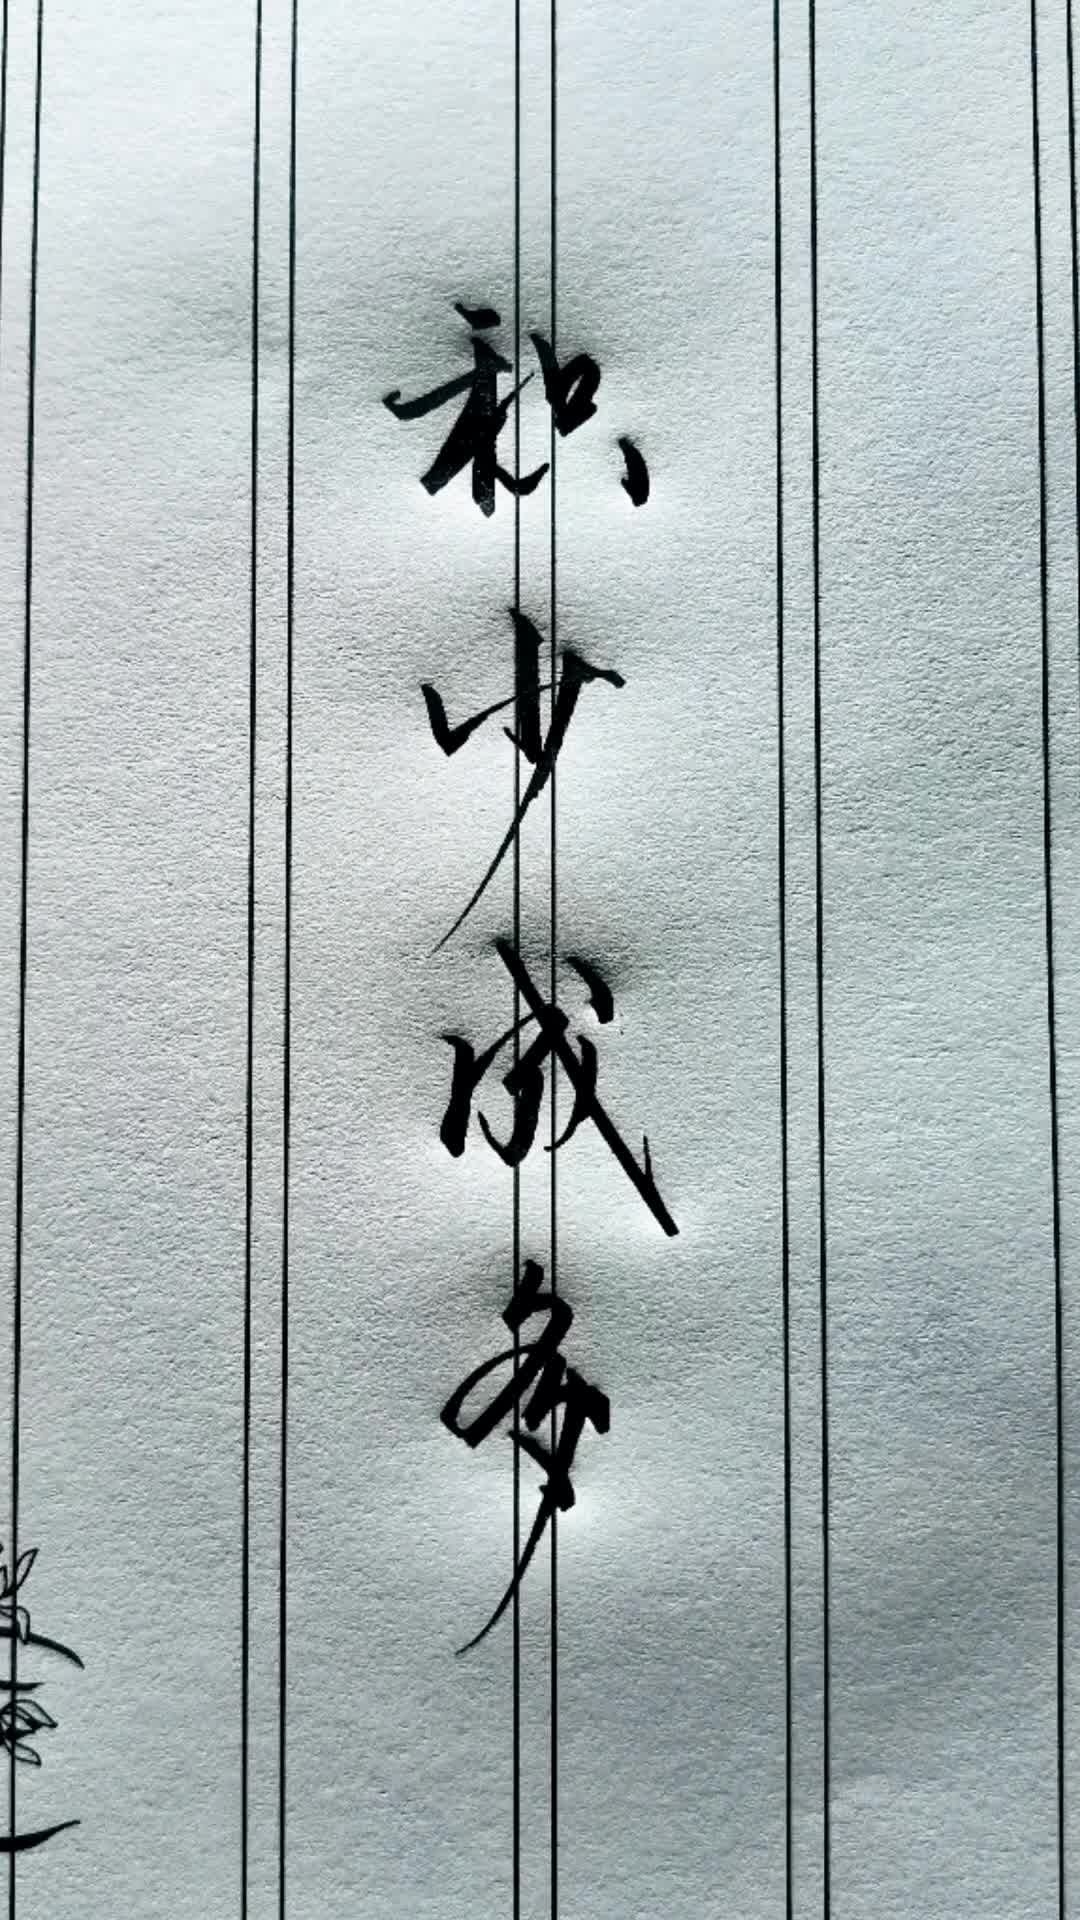 积少成多